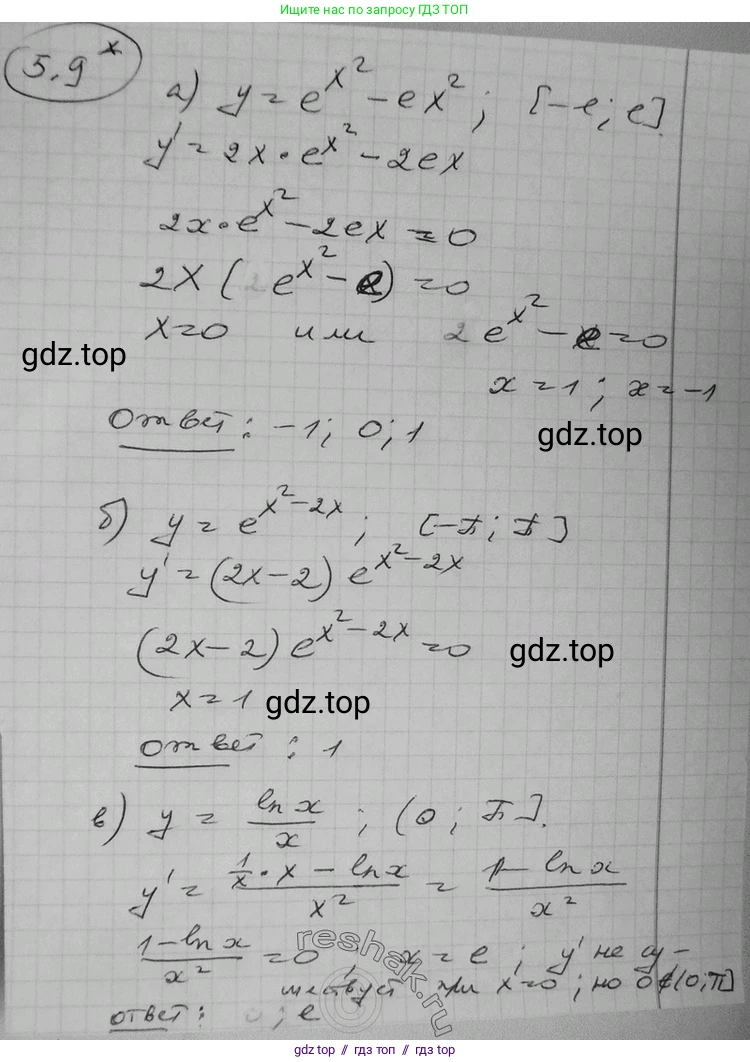 Ищите нас в поиске по запросу ГДЗ ТОП
5.9*
а) y = e^{x^2} - ex^2; [-e; e].
y' = 2x · e^{x^2} - 2ex
2x · e^{x^2} - 2ex = 0
2x ( e^{x^2} - e) = 0
x = 0 или e^{x^2} - e = 0
gdz.top
x = 1; x = -1
Ответ: -1; 0; 1
gdz.top
б) y = e^{x^2-2x}; [-π; π]
y' = (2x-2) e^{x^2-2x}
(2x-2) e^{x^2-2x} = 0
gdz.top
x = 1
gdz.top
ответ: 1
в) y = \frac{ln x}{x}; (0; π].
y' = \frac{\frac{1}{x} · x - ln x}{x^2} = \frac{1 - ln x}{x^2}
\frac{1-ln x}{x^2} = 0, x = e; y' не су-
ществует при x=0; но 0 ∉ (0; π]
reshak.ru
ответ: e
gdz.top // гдз топ // гдз.топ